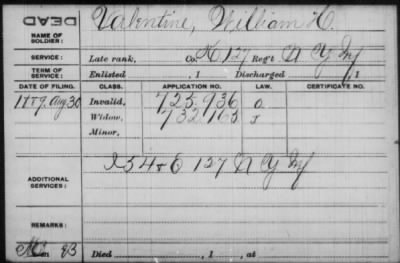 DEAD
Valentine, William H.
NAME OF SOLDIER:
SERVICE: Late rank, Co. K 127 Reg't N Y Inf
TERM OF SERVICE: Enlisted , 1 Discharged , 1
DATE OF FILING. CLASS. APPLICATION NO. LAW. CERTIFICATE NO.
1889. Aug 30 Invalid, 725.936
Widow,
Minor,
ADDITIONAL SERVICES: 127 N Y Inf
REMARKS:
Died , 1 , at